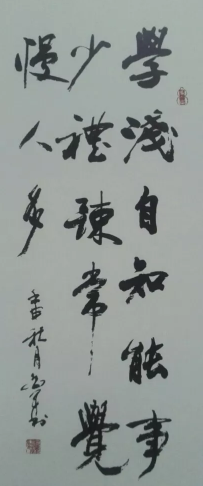 學淺自知能事
少禮疎常覺
慢人多
秋月